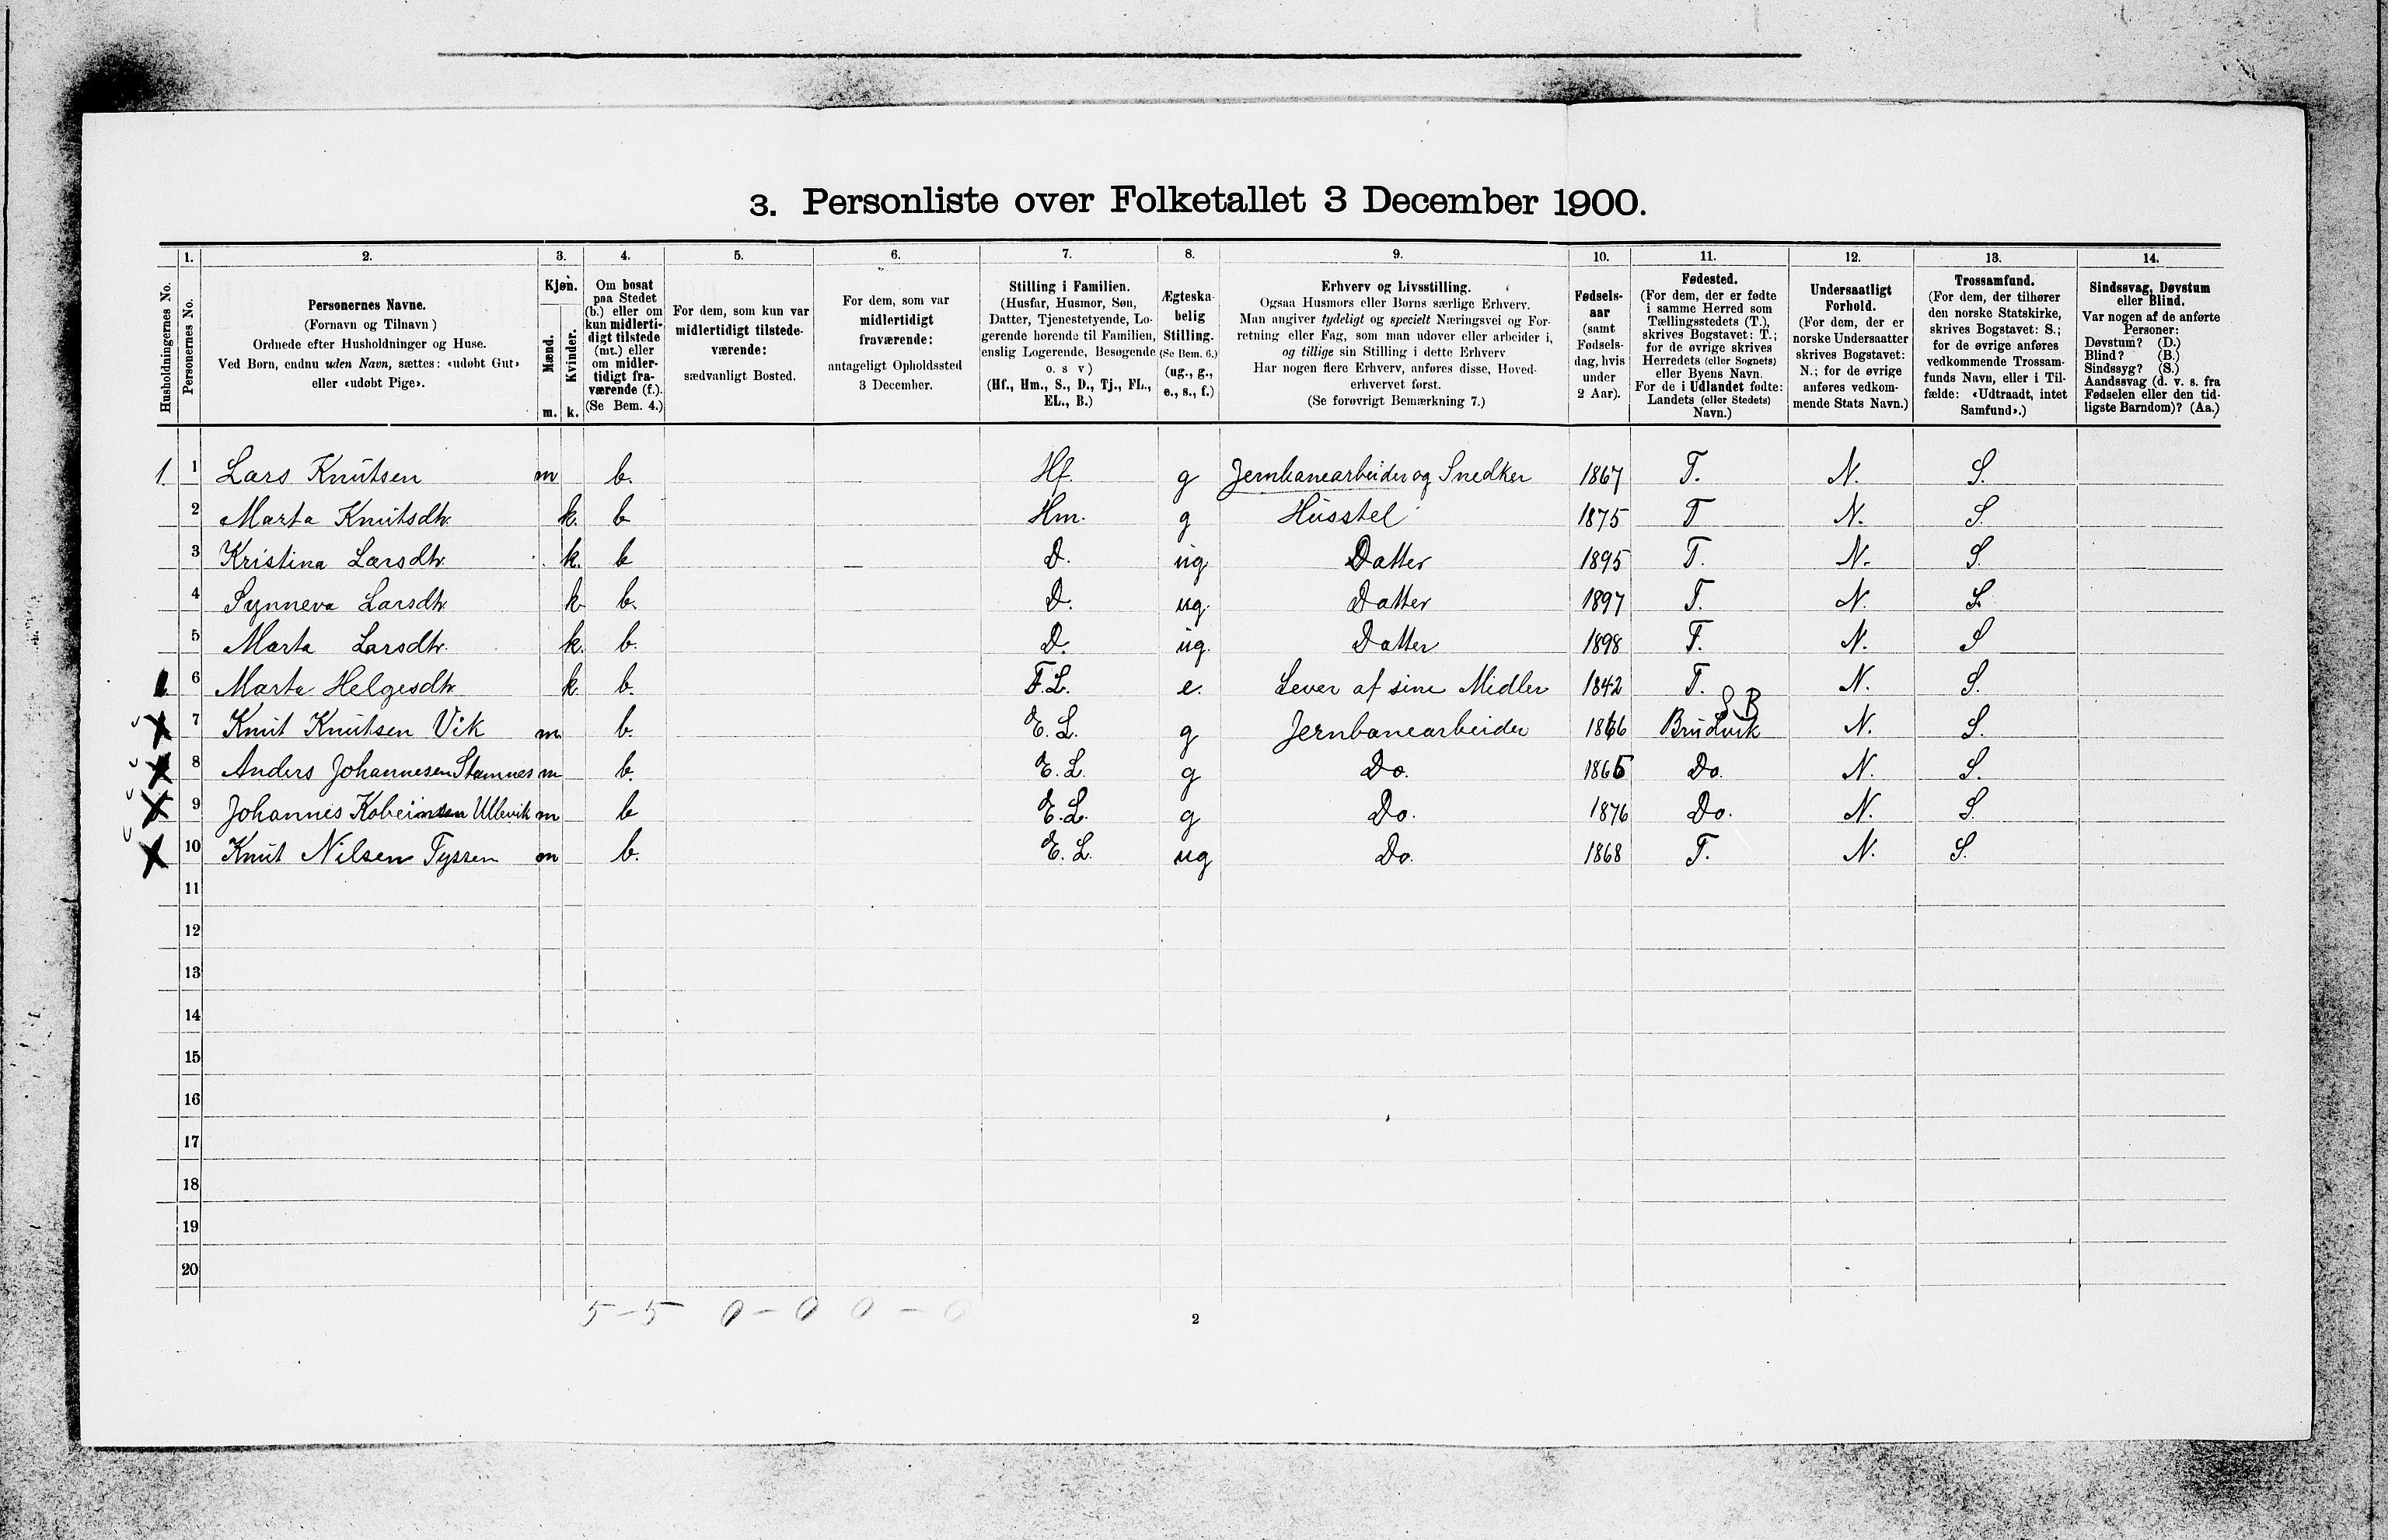 3. Personliste over Folketallet 3 December 1900.
1. 2. 3. 4. 5. 6. 7. 8. 9. 10. 11. 12. 13. 14.
Husholdningernes No.
Personernes No.
Personernes Navne.
(Fornavn og Tilnavn)
Ordnede efter Husholdninger og Huse.
Ved Børn, endnu uden Navn, sættes: «udøbt Gut»
eller «udøbt Pige».
Kjøn.
Mænd.
Kvinder.
m. k.
Om bosat
paa Stedet
(b.) eller om
kun midlerti-
digt tilstede
(mt.) eller
om midler-
tidigt fra-
værende (f.).
(Se Bem. 4.)
For dem, som kun var
midlertidigt tilstede-
værende:
sædvanligt Bosted.
For dem, som var
midlertidigt
fraværende:
antageligt Opholdssted
3 December.
Stilling i Familien.
(Husfar, Husmor, Søn,
Datter, Tjenestetyende, Lo-
gerende hørende til Familien,
enslig Logerende, Besøgende
o. s v.)
(Hf., Hm., S., D., Tj., FL.,
EL., B.)
Ægteska-
belig
Stilling.
(Se Bem. 6.)
(ug., g.,
e., s., f.)
Erhverv og Livsstilling.
Ogsaa Husmors eller Børns særlige Erhverv.
Man angiver tydeligt og specielt Næringsvei og For-
retning eller Fag, som man udøver eller arbeider i,
og tillige sin Stilling i dette Erhverv
Har nogen flere Erhverv, anføres disse, Hoved-
erhvervet først.
(Se forøvrigt Bemærkning 7.)
Fødsels-
aar
(samt
Fødsels-
dag, hvis
under
2 Aar).
Fødested.
(For dem, der er fødte
i samme Herred som
Tællingsstedets (T.),
skrives Bogstavet: T.;
for de øvrige skrives
Herredets (eller Sognets)
eller Byens Navn.
For de i Udlandet fødte:
Landets (eller Stedets)
Navn.)
Undersaatligt
Forhold.
(For dem, der er
norske Undersaatter
skrives Bogstavet:
N.; for de øvrige
anføres vedkom-
mende Stats Navn.)
Trossamfund.
(For dem, der tilhører
den norske Statskirke,
skrives Bogstavet: S.;
for de øvrige anføres
vedkommende Trossam-
funds Navn, eller i Til-
fælde: «Udtraadt, intet
Samfund».)
Sindssvag, Døvstum
eller Blind.
Var nogen af de anførte
Personer:
Døvstum? (D.)
Blind? (B.)
Sindssyg? (S.)
Aandssvag (d. v. s. fra
Fødselen eller den tid-
ligste Barndom)? (Aa.)
1 1 Lars Knutsen m b. Hf. g Jernbanearbeider og Snedker 1867 T. N. S.
2 Marta Knutsdtr. k. b Hm. g Husstel 1875 T N. S.
3 Kristina Larsdtr. k. b D. ug Datter 1895 T. N. S.
4 Synneva Larsdtr. k b. D. ug. Datter 1897 T. N. S.
5 Marta Larsdtr. k. b. D. ug. Datter 1898 T. N. S
6 Marta Helgesdtr. k. b. F.L. e. Lever af sine Midler 1842 T. N. S.
7 Knut Knutsen Vik m. b. E. L. g Jernbanearbeider 1866 Brudvik N. S.
8 Anders Johannesen Stamnes m b. E. L. g Do. 1865 Do. N. S.
9 Johannes Ullevik m b E.L. g Do. 1876 Do. N. S.
10 Knut Nilsen Tyssen m b. E. L. ug Do. 1868 T. N. S.
11
12
13
14
15
16
17
18
19
20
5 - 5 0 - 0 0 - 0
2